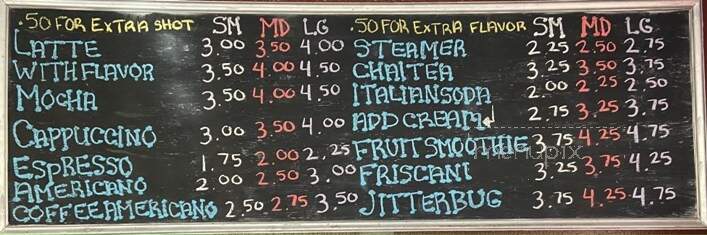 .50 FOR EXTRA SHOT SM MD LG
LATTE 3.00 3.50 4.00
WITH FLAVOR 3.50 4.00 4.50
MOCHA 3.50 4.00 4.50
CAPPUCCINO 3.00 3.50 4.00
ESPRESSO 1.75 2.00 2.25
AMERICANO 2.00 2.50 3.00
COFFEE AMERICANO 2.50 2.75 3.50
.50 FOR EXTRA FLAVOR SM MD LG
STEAMER 2.25 2.50 2.75
CHAI TEA 3.25 3.50 3.75
ITALIAN SODA 2.00 2.25 2.50
ADD CREAM 2.75 3.25 3.75
FRUIT SMOOTHIE 3.75 4.25 4.75
FRISCANI 3.25 3.75 4.25
JITTERBUG 3.75 4.25 4.75
menupix